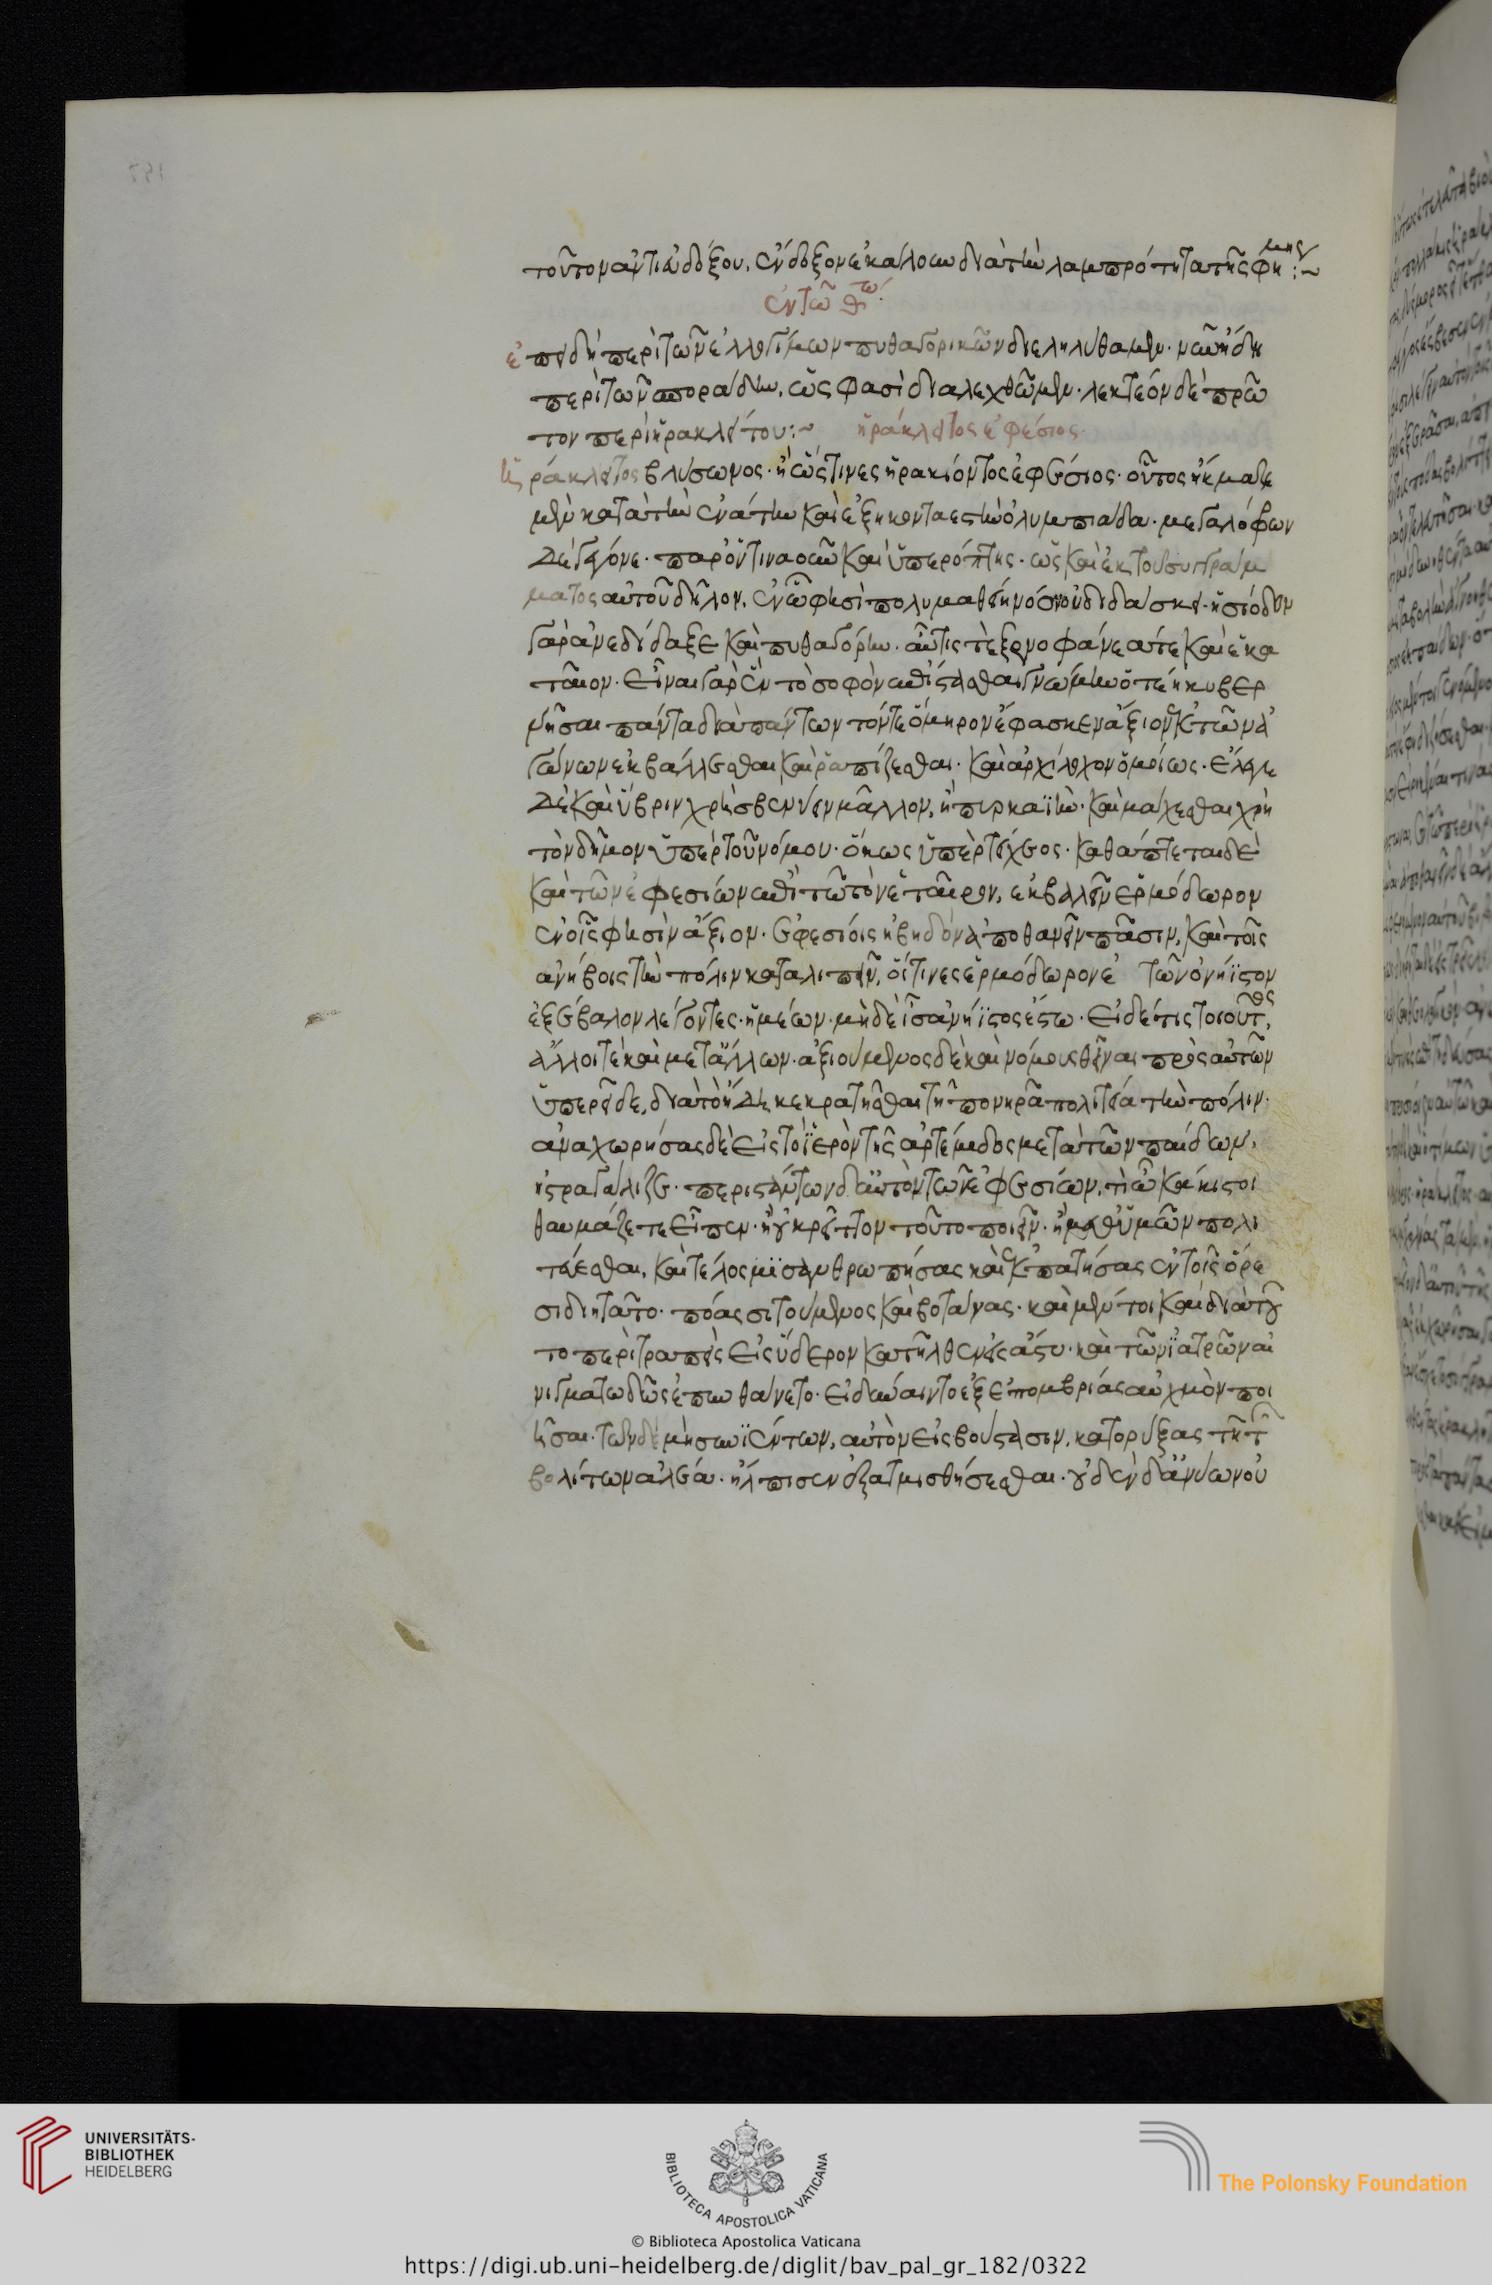 τοῦτον ἀντὶ εὐδόξου, ἔνδοξον ἐκάλουν διὰ τὴν λαμπρότητα τῆς φήμης :~
ἐν τῶ θτω.
ἐπειδὴ περὶ τῶν ἐλλογίμων πυθαγορικῶν διεληλύθαμεν· νῦν ἤδη
περὶ τῶν σποράδην, ὥς φασὶ διαλεχθῶμεν· λεκτέον δὲ πρῶ
τον περὶ ἡρακλείτου :~ ἡράκλειτος ἐφέσιος·
ἡράκλειτος βλύσωνος· ἢ ὥς τινες ἡρακιόντος ἐφέσιος· οὗτος ἤκμαζε
μὲν κατὰ τὴν ἐνάτην καὶ ἑξηκονταεστὴν ὀλυμπιάδα· μεγαλόφρων
δὲ γέγονε· παρ' ὅντινα οῦν καὶ ὑπερόπτης· ὡς καὶ ἐκ τοῦ συγγράμ
ματος αὐτοῦ δῆλον, ἐν ὧ φησὶ πολυμαθείη νόον οὐ διδάσκει· ἡσίοδον
γὰρ ἂν ἐδίδαξε καὶ πυθαγόρην· αὖτίς τε ξενοφάνεά τε καὶ ἑκα
ταῖον· εἶναι γὰρ ἓν τὸ σοφὸν ἐπίστασθαι γνώμην ὅτε ἡ κυβερ
νῆσαι πάντα διὰ πάντων τόν τε ὅμηρον ἔφασκεν ἄξιον ἐκ τῶν ἀ
γώνων ἐκβάλλεσθαι καὶ ῥαπίζεσθαι· καὶ ἀρχίλοχον ὁμοίως· ἔλεγε
δὲ καὶ ὕβριν χρὴ σβεννύειν μᾶλλον, ἢ πυρκαϊὴν· καὶ μάχεσθαι χρὴ
τὸν δῆμον ὑπὲρ τοῦ νόμου· ὅκως ὑπὲρ τείχεος· καθάπτεται δὲ
καὶ τῶν ἐφεσίων ἐπὶ τῶ τὸν ἑταῖρον, ἐκβαλεῖν ἑρμόδωρον
ἐν οἷς φησὶν ἄξιον· ἐφεσίοις ἡβηδὸν ἀποθανεῖν πᾶσιν, καὶ τοῖς
ἀνήβοις τὴν πόλιν καταλιπεῖν, οἵτινες ἑρμόδωρον ἑ τῶν ὀνήϊστον
ἐξέβαλον λέγοντες· ἡμέων· μηδὲ εἷς ἀνήϊστος ἔστω· εἰ δέ τις τοιοῦτος,
ἄλλοι τὲ καὶ μετ' ἄλλων· ἀξιούμενος δὲ καὶ νόμους θεῖναι πρὸς αὐτῶν
ὑπερεῖδε, διὰ τὸ ἤδη κεκρατῆσθαι τῆ πονηρᾶ πολιτεία τὴν πόλιν·
ἀναχωρήσας δὲ εἰς τὸ ἱερὸν τῆς ἀρτέμιδος μετὰ τῶν παίδων,
ἠστραγάλιζε· περιστάντων δ' αὐτὸν τῶν ἐφεσίων, τί ὦ κάκιστοι
θαυμάζετε εἶπεν· ἢ οὐ κρεῖττον τοῦτο ποιεῖν· ἢ μεθ' ὑμῶν πολι
τεύεσθαι, καὶ τέλος μισανθρωπήσας καὶ ἐκπατήσας ἐν τοῖς ὄρε
σι διητᾶτο· πόας σιτούμενος καὶ βοτάνας· καὶ μέν τοι καὶ διὰ τοῦ
το περιτραπεὶς εἰς ὕδερον κατῆλθεν εἰς ἄστυ· καὶ τῶν ἰατρῶν αἰ
νιγματωδῶς ἐπυνθάνετο· εἰ δύναιντο ἐξ ἐπομβρίας αὐχμὸν ποι
ῆσαι· τῶν δὲ μὴ συνϊέντων, αὐτὸν εἰς βούστασιν, κατορύξας τῆ τ
βολίτων ἀλέα· ἤλπισεν ἐξατμισθήσεσθαι· οὐδὲν δ' ἀνύων οὐ
197
UNIVERSITÄTS-
BIBLIOTHEK
HEIDELBERG
BIBLIOTECA APOSTOLICA VATICANA
© Biblioteca Apostolica Vaticana
The Polonsky Foundation
https://digi.ub.uni-heidelberg.de/diglit/bav_pal_gr_182/0322